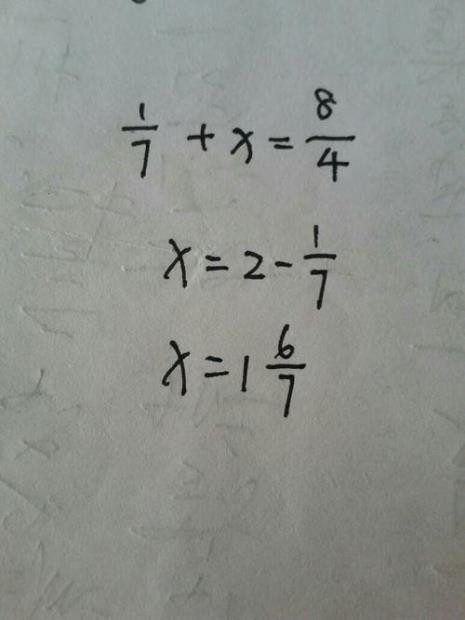 1/7 + x = 8/4
x = 2 - 1/7
x = 1 6/7